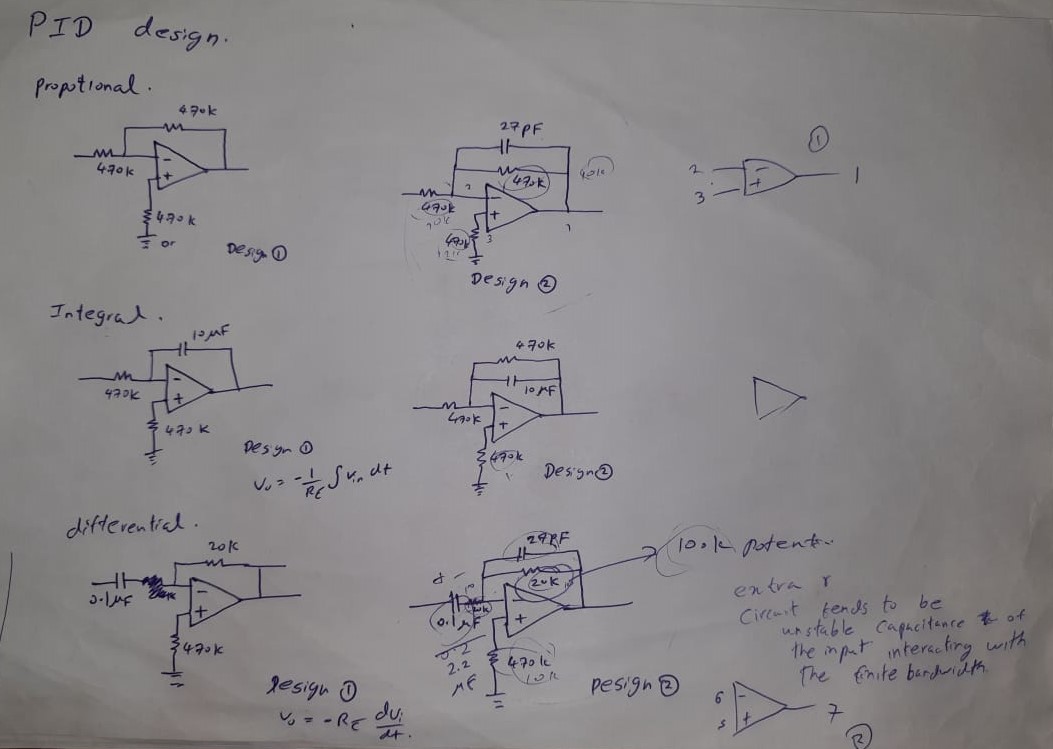 PID design.
propotional.
470k
470k
470k
or
Design ①
27pF
470k
40k
470k
10k
2
470k
3
1
Design ②
①
2
3
1
Integral.
10μF
470k
470k
Design ①
Vo = -1/RC ∫ Vin dt
470k
10μF
470k
470k
Design ②
differential.
20k
0.1μF
470k
Design ①
Vo = -RC dVi/dt.
27pF
20k
100k potent
0.1μF
2.2
μF
470k
10k
Design ②
extra r
Circuit tends to be
unstable Capacitance of
the input interacting with
The finite bandwidth.
6
5
7
②